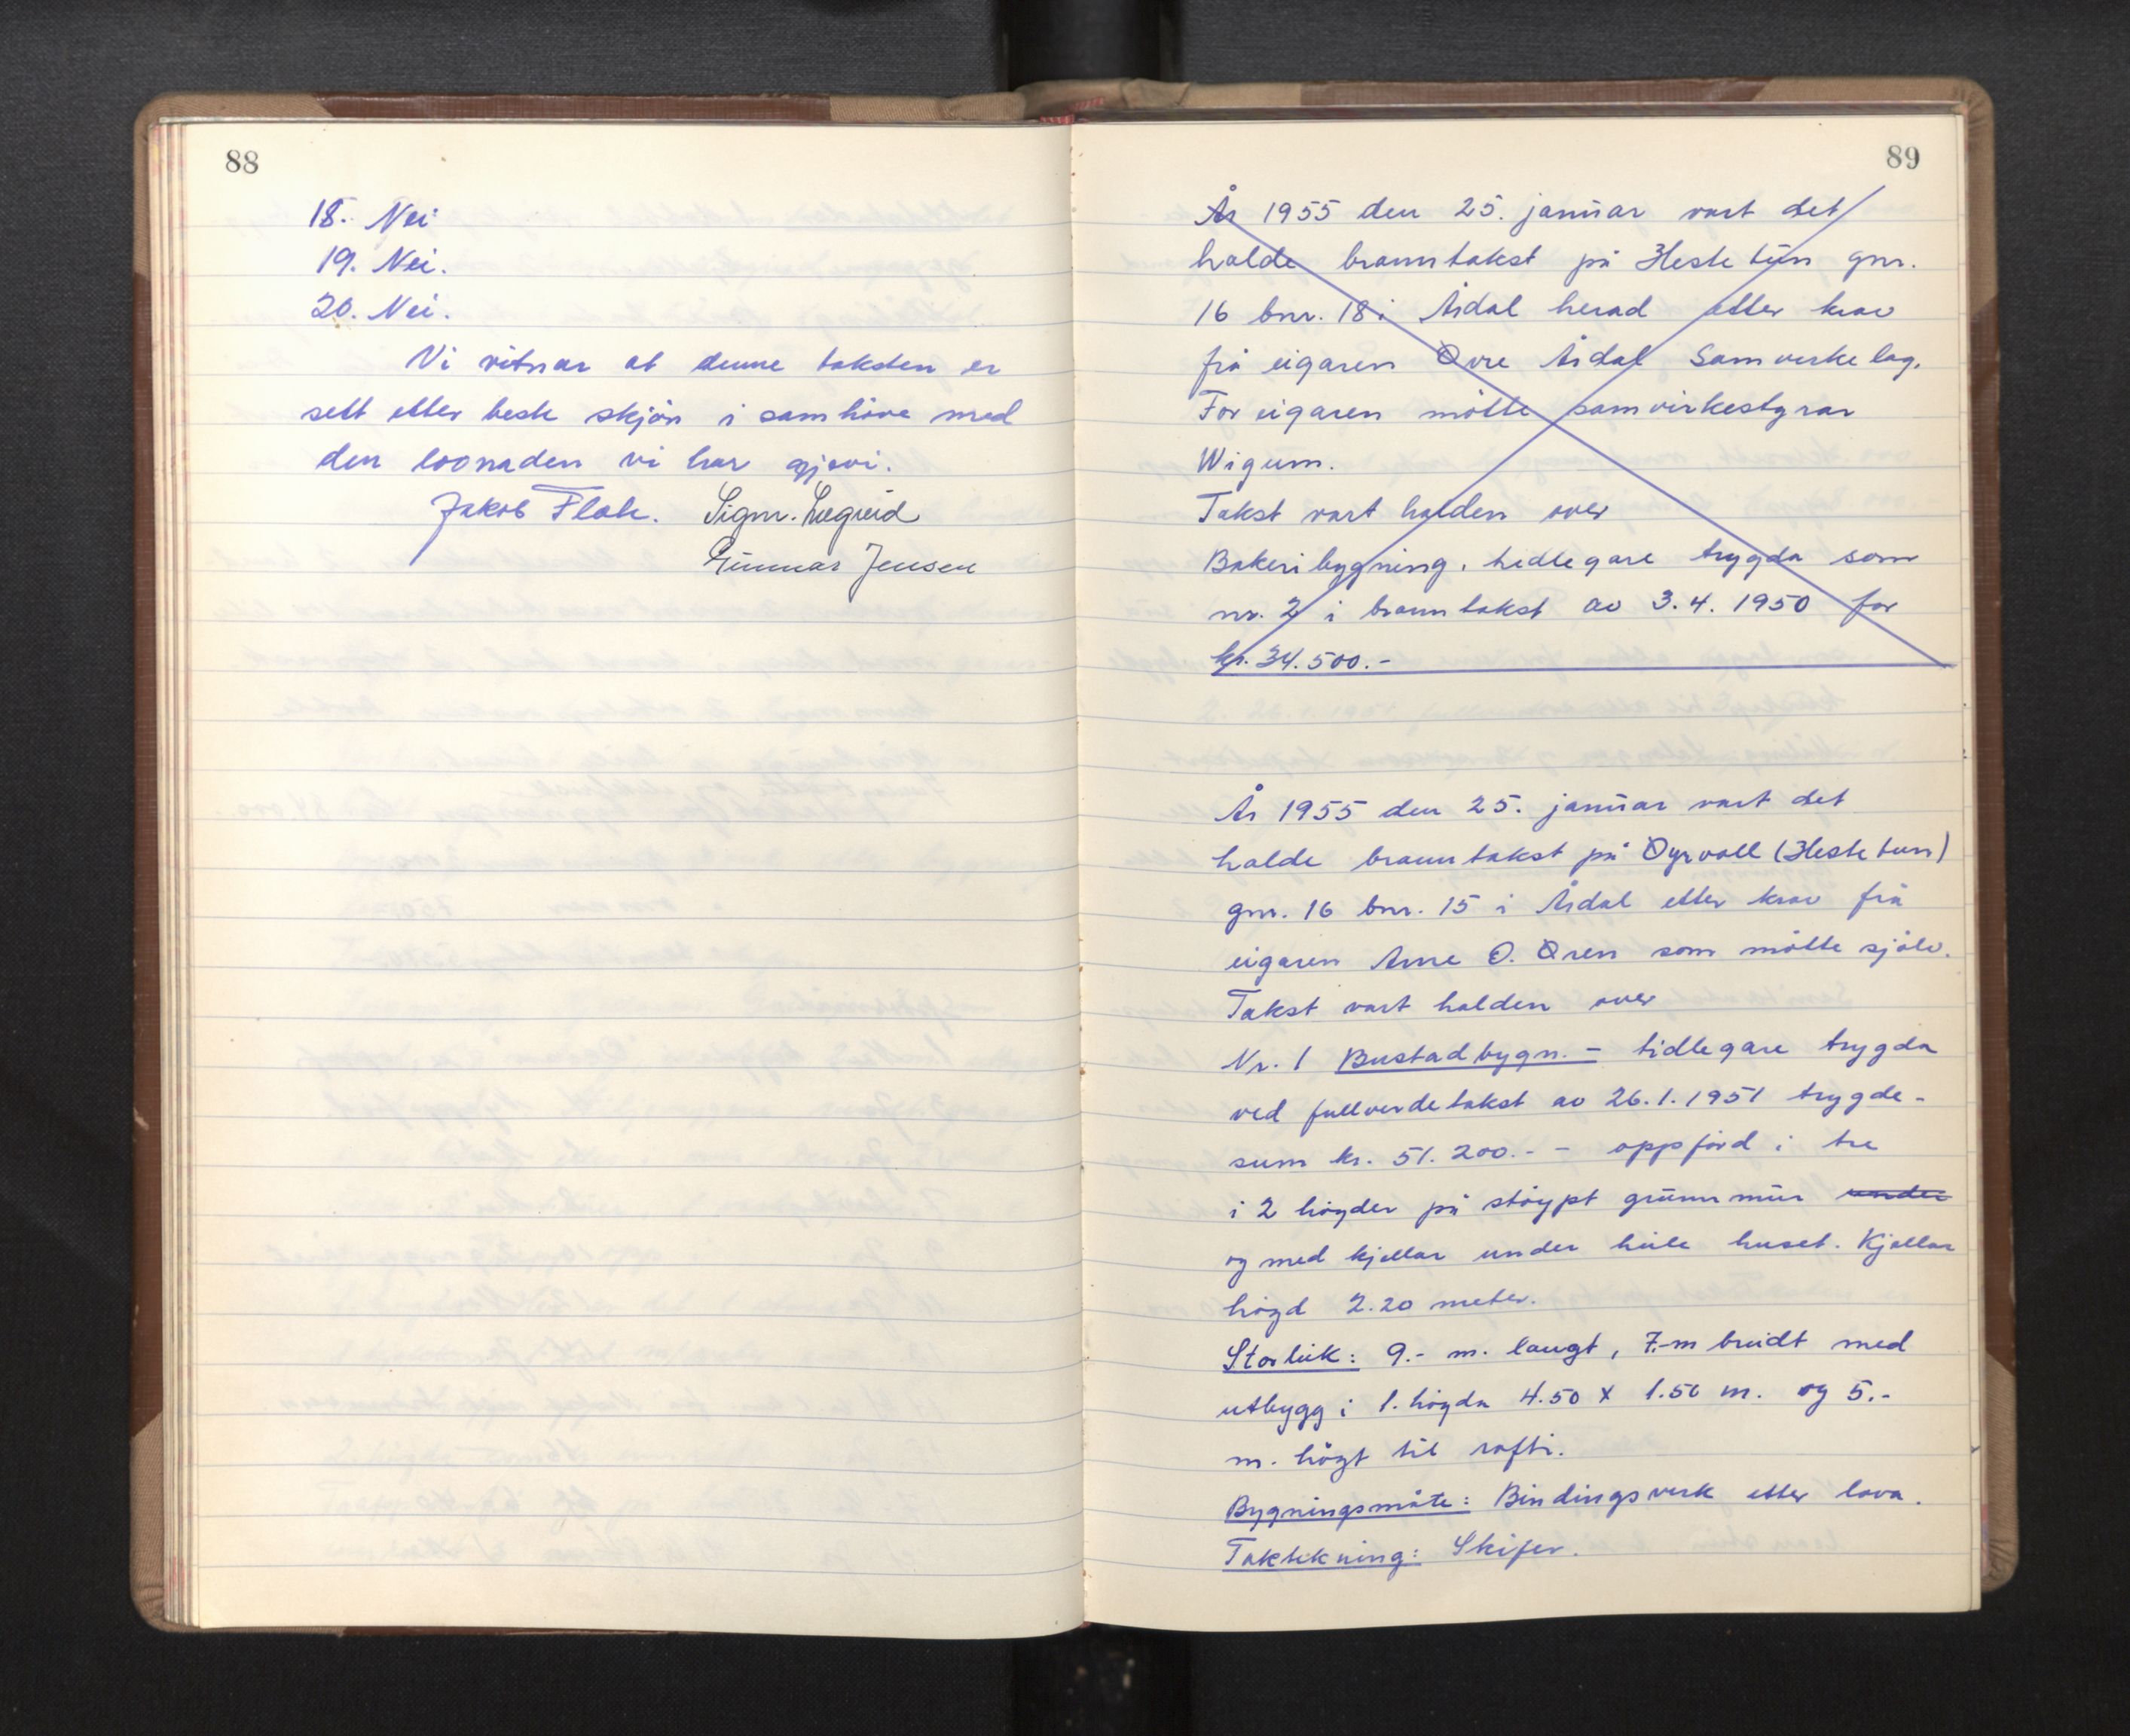 88
18. Nei
19. Nei.
20. Nei.
Vi vitnar at denne taksten er
sett etter beste skjön i samhöve med
den lovnaden vi har gjevi.
Jakob Flah. Sigm. Lægreid
Gunnar Jensen
89
År 1955 den 25. januar vart det
halde branntakst på Hestetun gnr.
16 bnr. 18 i Årdal herad etter krav
frå eigaren Øvre Årdal Samverkelag.
For eigaren mötte samvirkestyrar
Wigum.
Takst vart halden over
Bakeribygning, tidlegare trygda som
nr. 2 i branntakst av 3.4. 1950 for
kr. 34.500.-
År 1955 den 25. januar vart det
halde branntakst på Øyrvoll (Hestetun)
gnr. 16 bnr. 15 i Årdal etter krav frå
eigaren Arne O. Øren som mötte sjölv.
Takst vart halden over
Nr. 1 Bustadbygn. - tidlegare trygda
ved fullverdetakst av 26.1.1951 trygde-
sum kr. 51.200.- - oppförd i tre
i 2 högder på stöypt grunnmur under
og med kjellar under heile huset. Kjellar
högd 2.20 meter.
Storleik: 9.- m. langt, 7.-m breidt med
utbygg i 1. högda 4.50 x 1.50 m. og 5.-
m. högt til rafti.
Bygningsmåte: Bindingsverk etter lova.
Taktekning: Skifer.